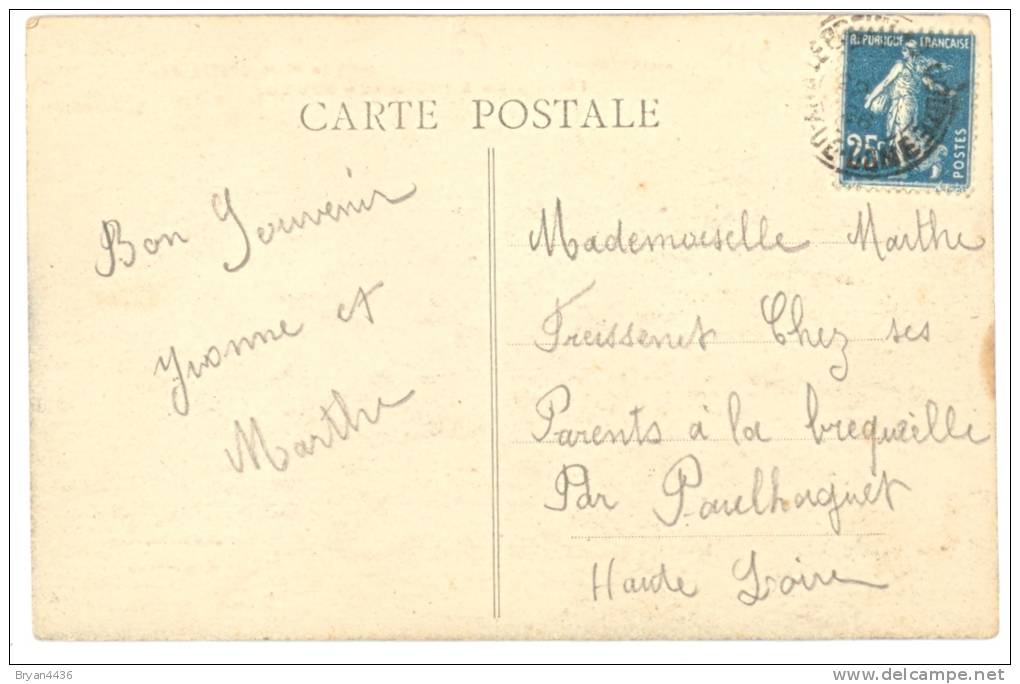 CARTE POSTALE
RÉPUBLIQUE FRANÇAISE
25c
POSTES
DOME
Bon Souvenir
Yvonne et
Marthe
Mademoiselle Marthe
Freissenet Chez ses
Parents à la brequeille
Par Paulhaguet
Haute Loire
Bryan4436
www.delcampe.net